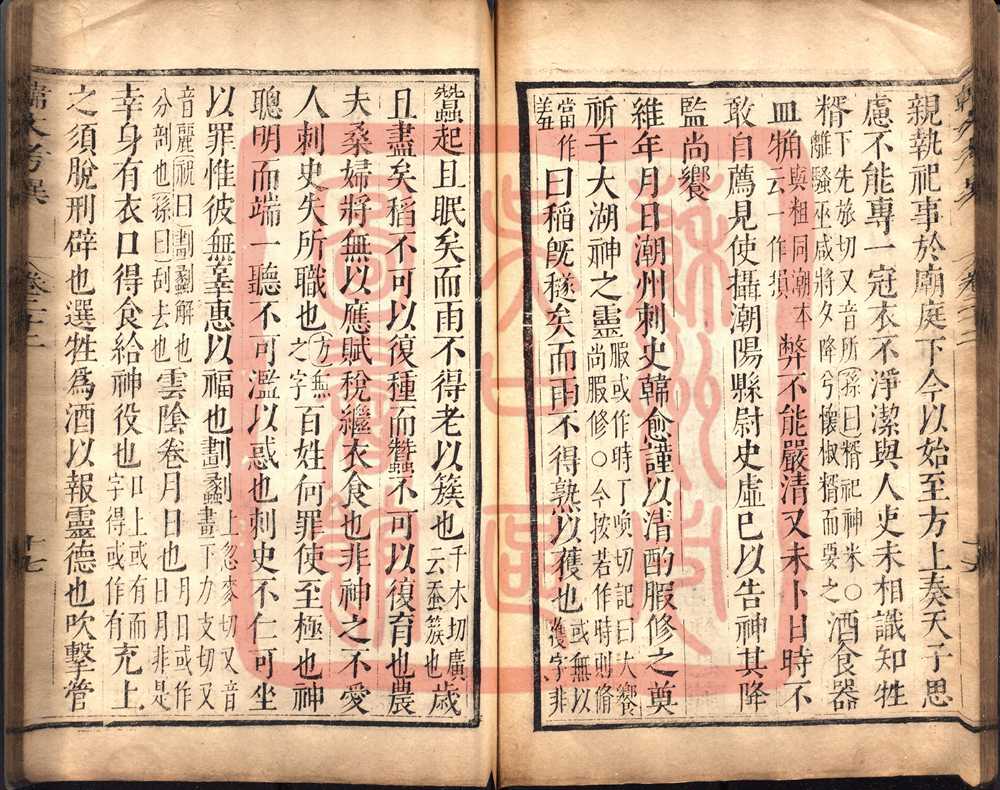 親執祀事於廟庭下今以始至方上奏天子思
慮不能專一冠衣不淨潔與人吏未相識知牲
糈下先旅切又音所孫曰糈祀神米○離騷巫咸將夕降兮懷椒糈而要之酒食器
皿觕與粗同潮本云一作損弊不能嚴清又未卜日時不
敢自薦見使攝潮陽縣尉史虛巳以告神其降
監尚饗
維年月日潮州刺史韓愈謹以清酌腶修之奠
祈于大湖神之靈腶或作時丁喚切記曰大饗尚腶修○今按若作時則脩
當作羞曰稻既穟矣而雨不得熟以穫也或無以穫字非
蠶起且眠矣而雨不得老以簇也千木切廣云蠶簇也歲
且盡矣稻不可以復種而蠶不可以復育也農
夫桑婦將無以應賦稅繼衣食也非神之不愛
人刺史失所職也方無之字百姓何罪使至極也神
聰明而端一聽不可濫以惑也刺史不仁可坐
以罪惟彼無辜惠以福也劃劙上忽麥切又音畫下力支切又
音麗祝曰劃劙解也分剖也孫曰刮去也雲陰卷月日也月日或作日月非是
幸身有衣口得食給神役也口上或有而字得或作有充上
之須脫刑辟也選牲為酒以報靈德也吹擊管
韓文考異 卷二十二 十七